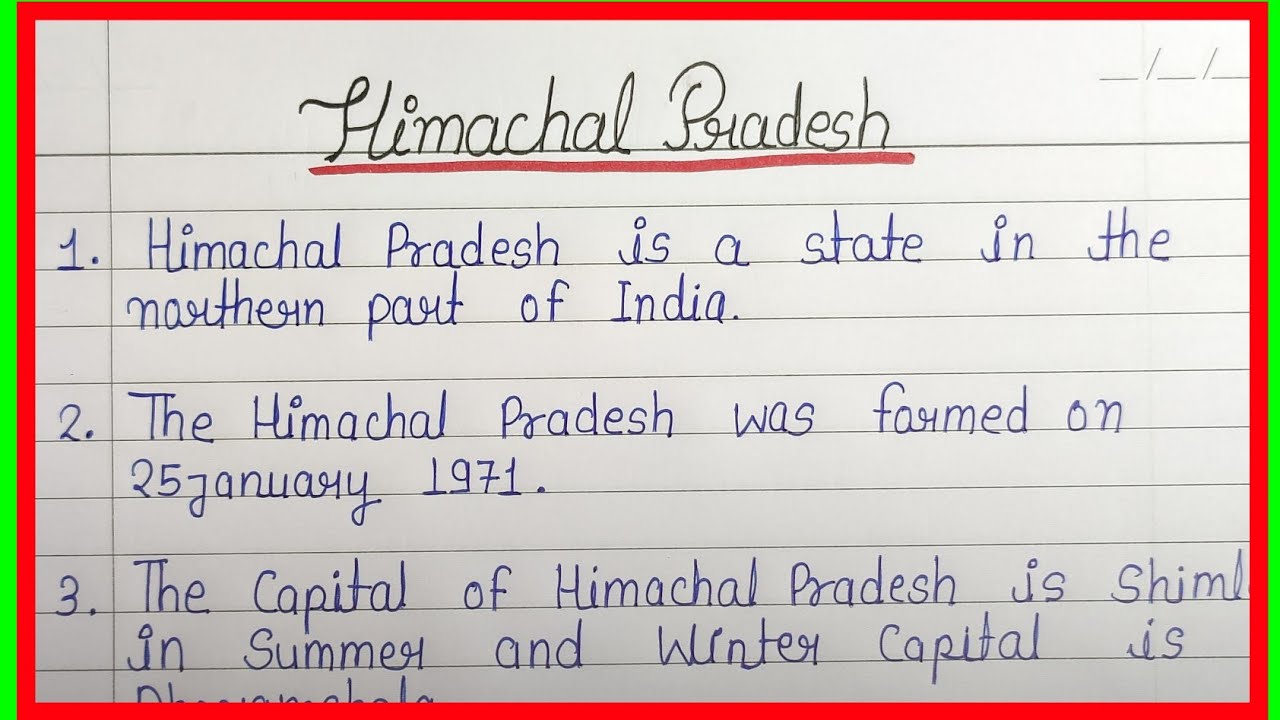 Himachal Pradesh
1. Himachal Pradesh is a state in the
northern part of India.
2. The Himachal Pradesh was formed on
25 january 1971.
3. The Capital of Himachal Pradesh is Shiml
in Summer and Winter Capital is